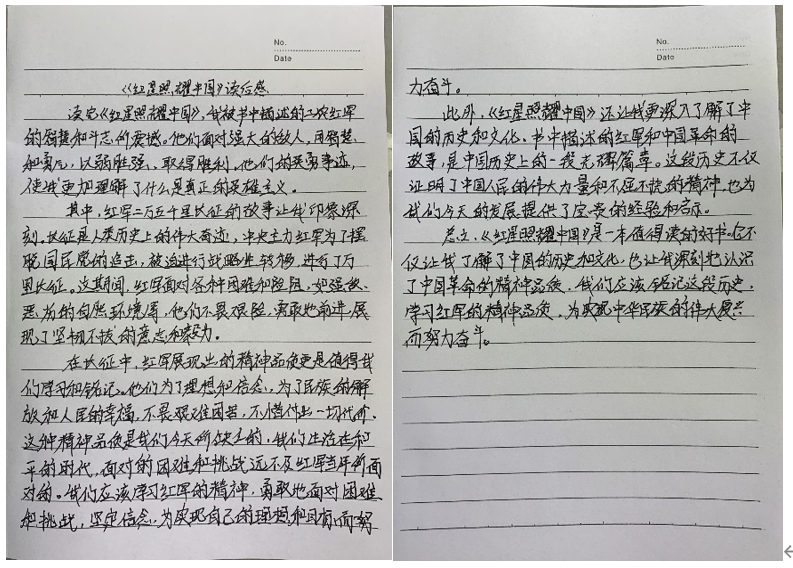 No.
Date
《红星照耀中国》读后感
读完《红星照耀中国》,我被书中描述的工农红军
的智慧和斗志所震撼。他们面对强大的敌人,用智慧
和勇气,以弱胜强、取得胜利。他们的英勇事迹,
使我更加理解了什么是真正的英雄主义。
其中,红军二万五千里长征的故事让我印象深
刻。长征是人类历史上的伟大奇迹,中央主力红军为了摆
脱国民党的追击,被迫进行战略性转移,进行了万
里长征。这期间,红军面对各种困难和险阻,如强敌、
恶劣的自然环境等,他们不畏艰险,勇敢地前进,展
现了坚韧不拔的意志和毅力。
在长征中,红军展现出的精神品质更是值得我
们学习和铭记。他们为了理想和信念,为了民族的解
放和人民的幸福,不畏艰难困苦,不惜付出一切代价。
这种精神品质是我们今天所缺乏的,我们生活在和
平的时代,面对的困难和挑战远不及红军当年所面
对的。我们应该学习红军的精神,勇敢地面对困难
和挑战,坚定信念,为实现自己的理想和目标而努
No.
Date
力奋斗。
此外,《红星照耀中国》还让我更深入了解了中
国的历史和文化。书中描述的红军和中国革命的
故事,是中国历史上的一段光辉篇章。这段历史不仅
证明了中国人民的伟大力量和不屈不挠的精神,也为
我们今天的发展提供了宝贵的经验和启示。
总之,《红星照耀中国》是一本值得读的好书,它不
仅让我了解了中国的历史和文化,也让我深刻地认识
了中国革命的精神品质。我们应该铭记这段历史,
学习红军的精神品质,为实现中华民族的伟大复兴
而努力奋斗。